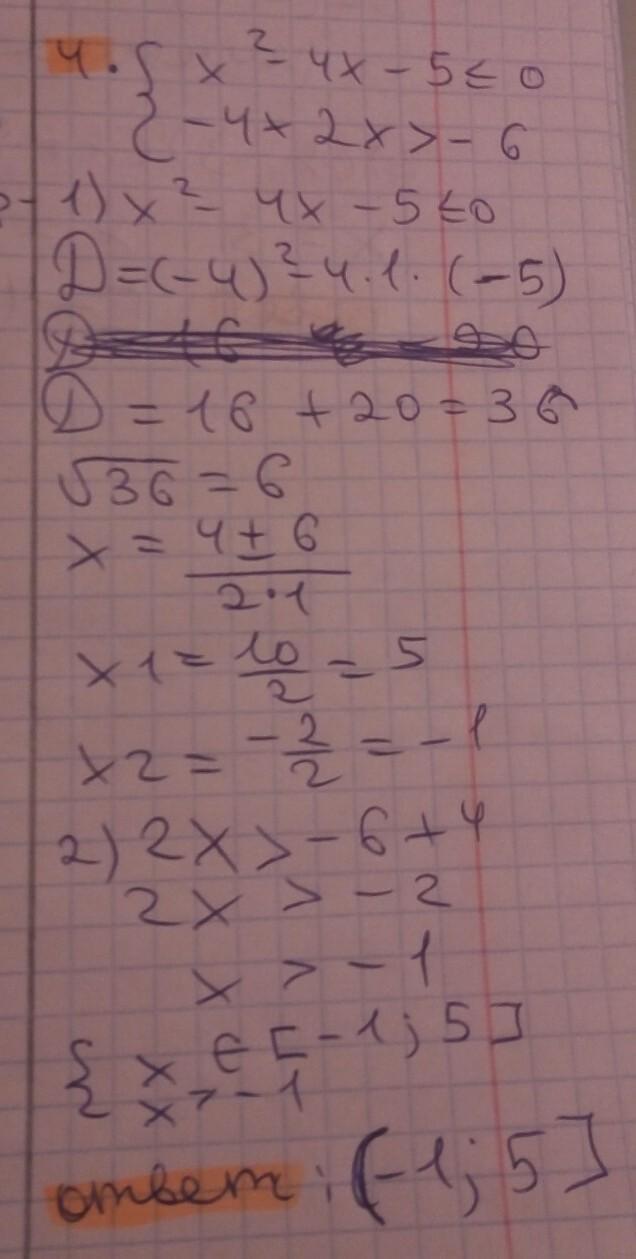 4. { x² - 4x - 5 ≤ 0
-4x 2x > - 6
1) x² - 4x - 5 ≤ 0
D = (-4)² - 4·1·(-5)
D = 16 + 20 = 36
√36 = 6
x = (4 ± 6)/(2·1)
x1 = 10/2 = 5
x2 = -2/2 = -1
2) 2x > - 6 + 4
2x > - 2
x > - 1
{ x ∈ [-1; 5]
x > - 1
ответ: (-1; 5]